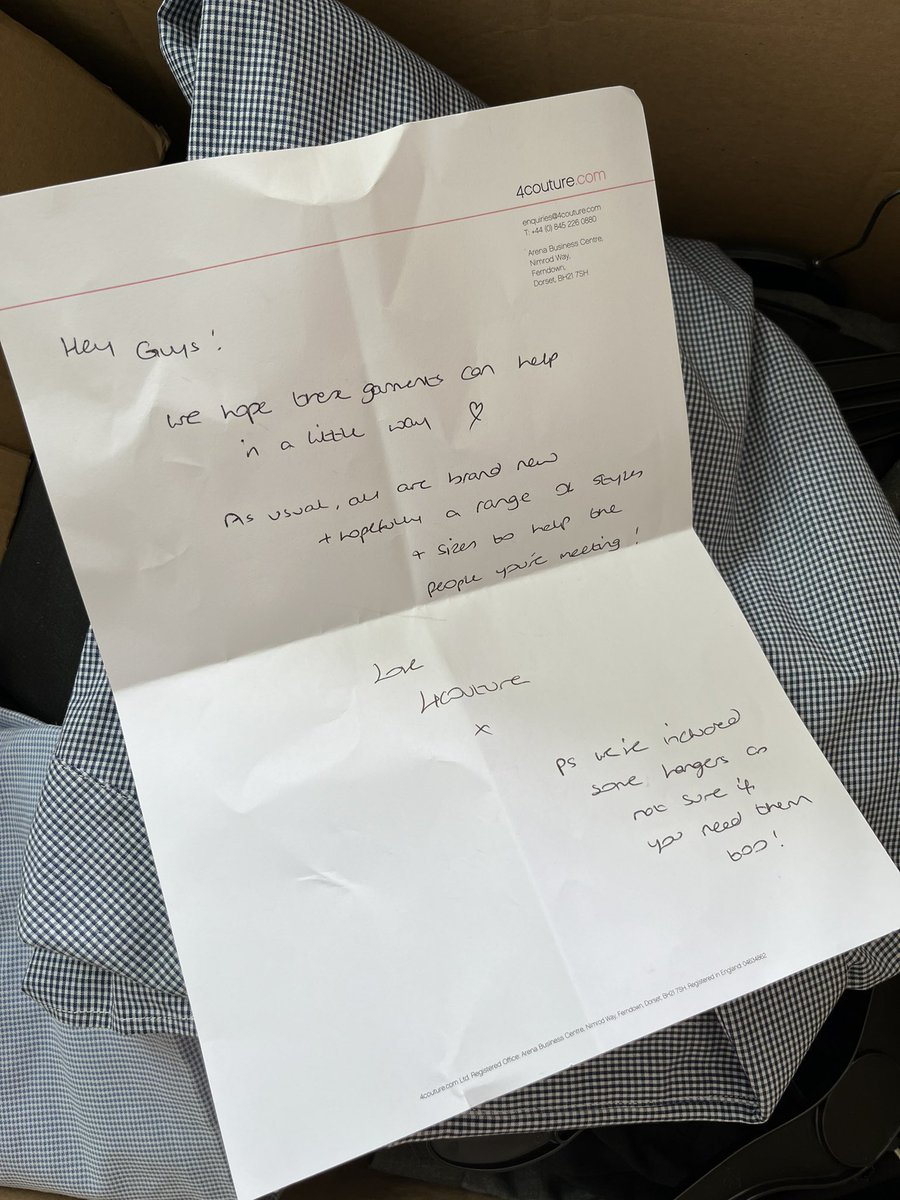 4couture.com
enquiries@4couture.com
T: +44 (0) 845 226 0880
Arena Business Centre,
Nimrod Way,
Ferndown,
Dorset, BH21 7SH
Hey Guys!
We hope these garments can help
in a little way ♡
As usual, all are brand new
+ hopefully a range of styles
+ sizes to help the
people you're meeting!
Love
4couture
x
PS we've included
some hangers as
not sure if
you need them
too!
4couture.com Ltd. Registered Office: Arena Business Centre, Nimrod Way, Ferndown, Dorset, BH21 7SH. Registered in England